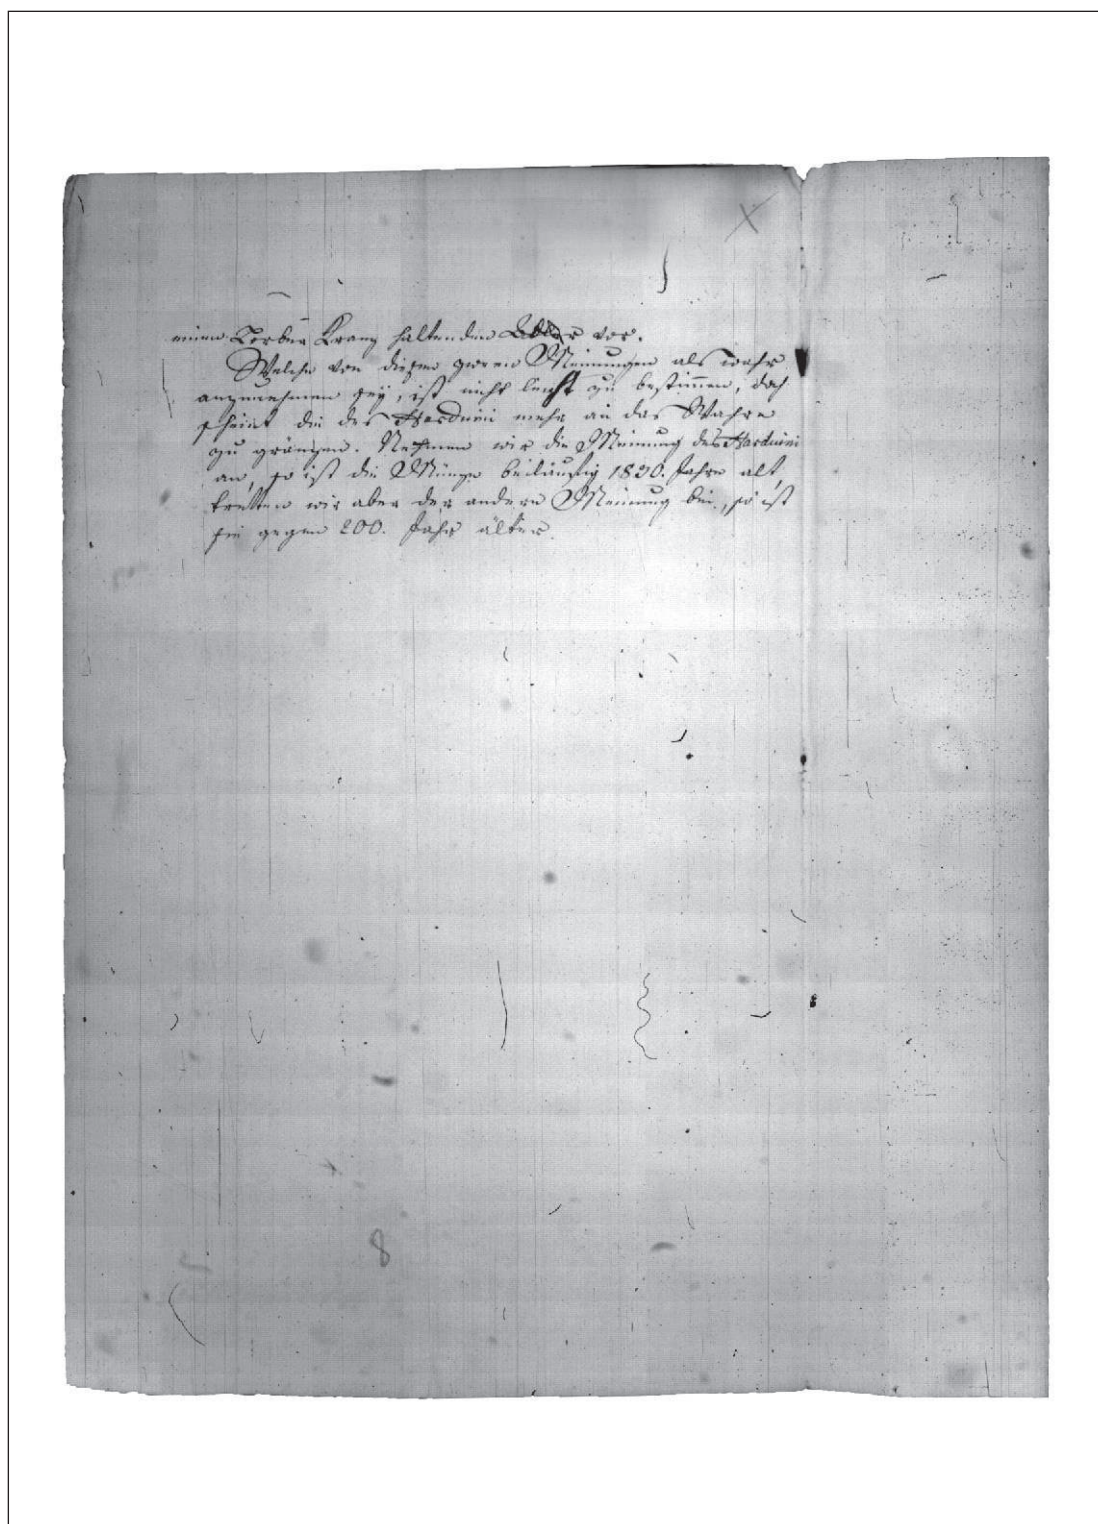 einen Lorber Kranz haltenden Adler vor.
Welche von diesen zween Meinungen als wahr
anzunehmen sey, ist nicht leicht zu bestimmen, doch
scheint die des Harduini mehr an das Wahre
zu gränzen. Nehmen wir die Meinung des Harduini
an, so ist die Münze beiläufig 1830. Jahre alt,
tretten wir aber der andern Meinung bei, so ist
sie gegen 200. Jahr älter.
8